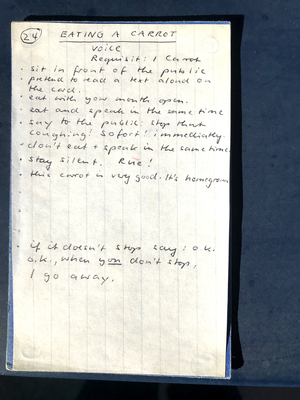 24 EATING A CARROT
VOICE
Requisit: 1 Carrot
· sit in front of the public
· pretend to read a text aloud on
the card.
· eat with your mouth open.
· eat and speak in the same time
· say to the public: stop that
coughing! Sofort! immediatly
· don't eat + speak in the same time.
· stay silent. Rise!
· this carrot is very good. It's homegrown
· if it doesn't stop say: o.k.
o.k., when you don't stop,
I go away.